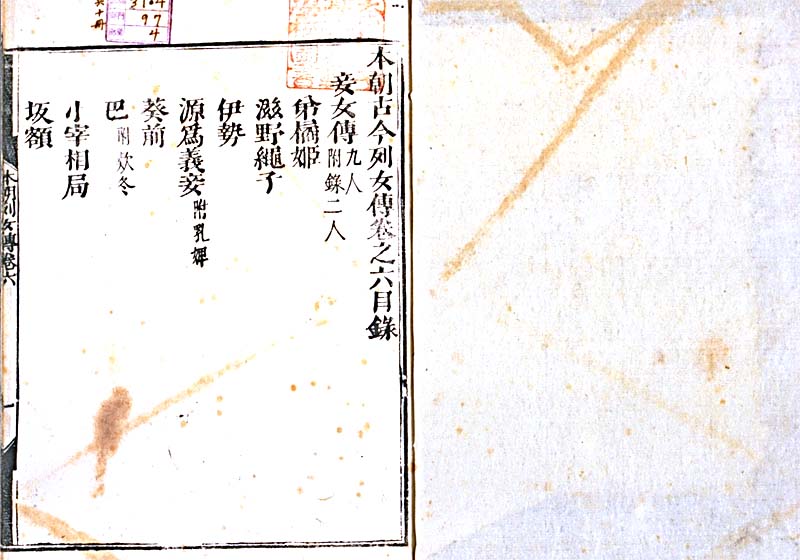 本朝古今列女傳卷之六目錄
妾女傳九人附錄二人
弟橘姬
滋野繩子
伊勢
源爲義妾附乳婢
葵前
巴附款冬
小宰相局
坂額
本朝列女傳卷六
一
3104
97
4
共十冊